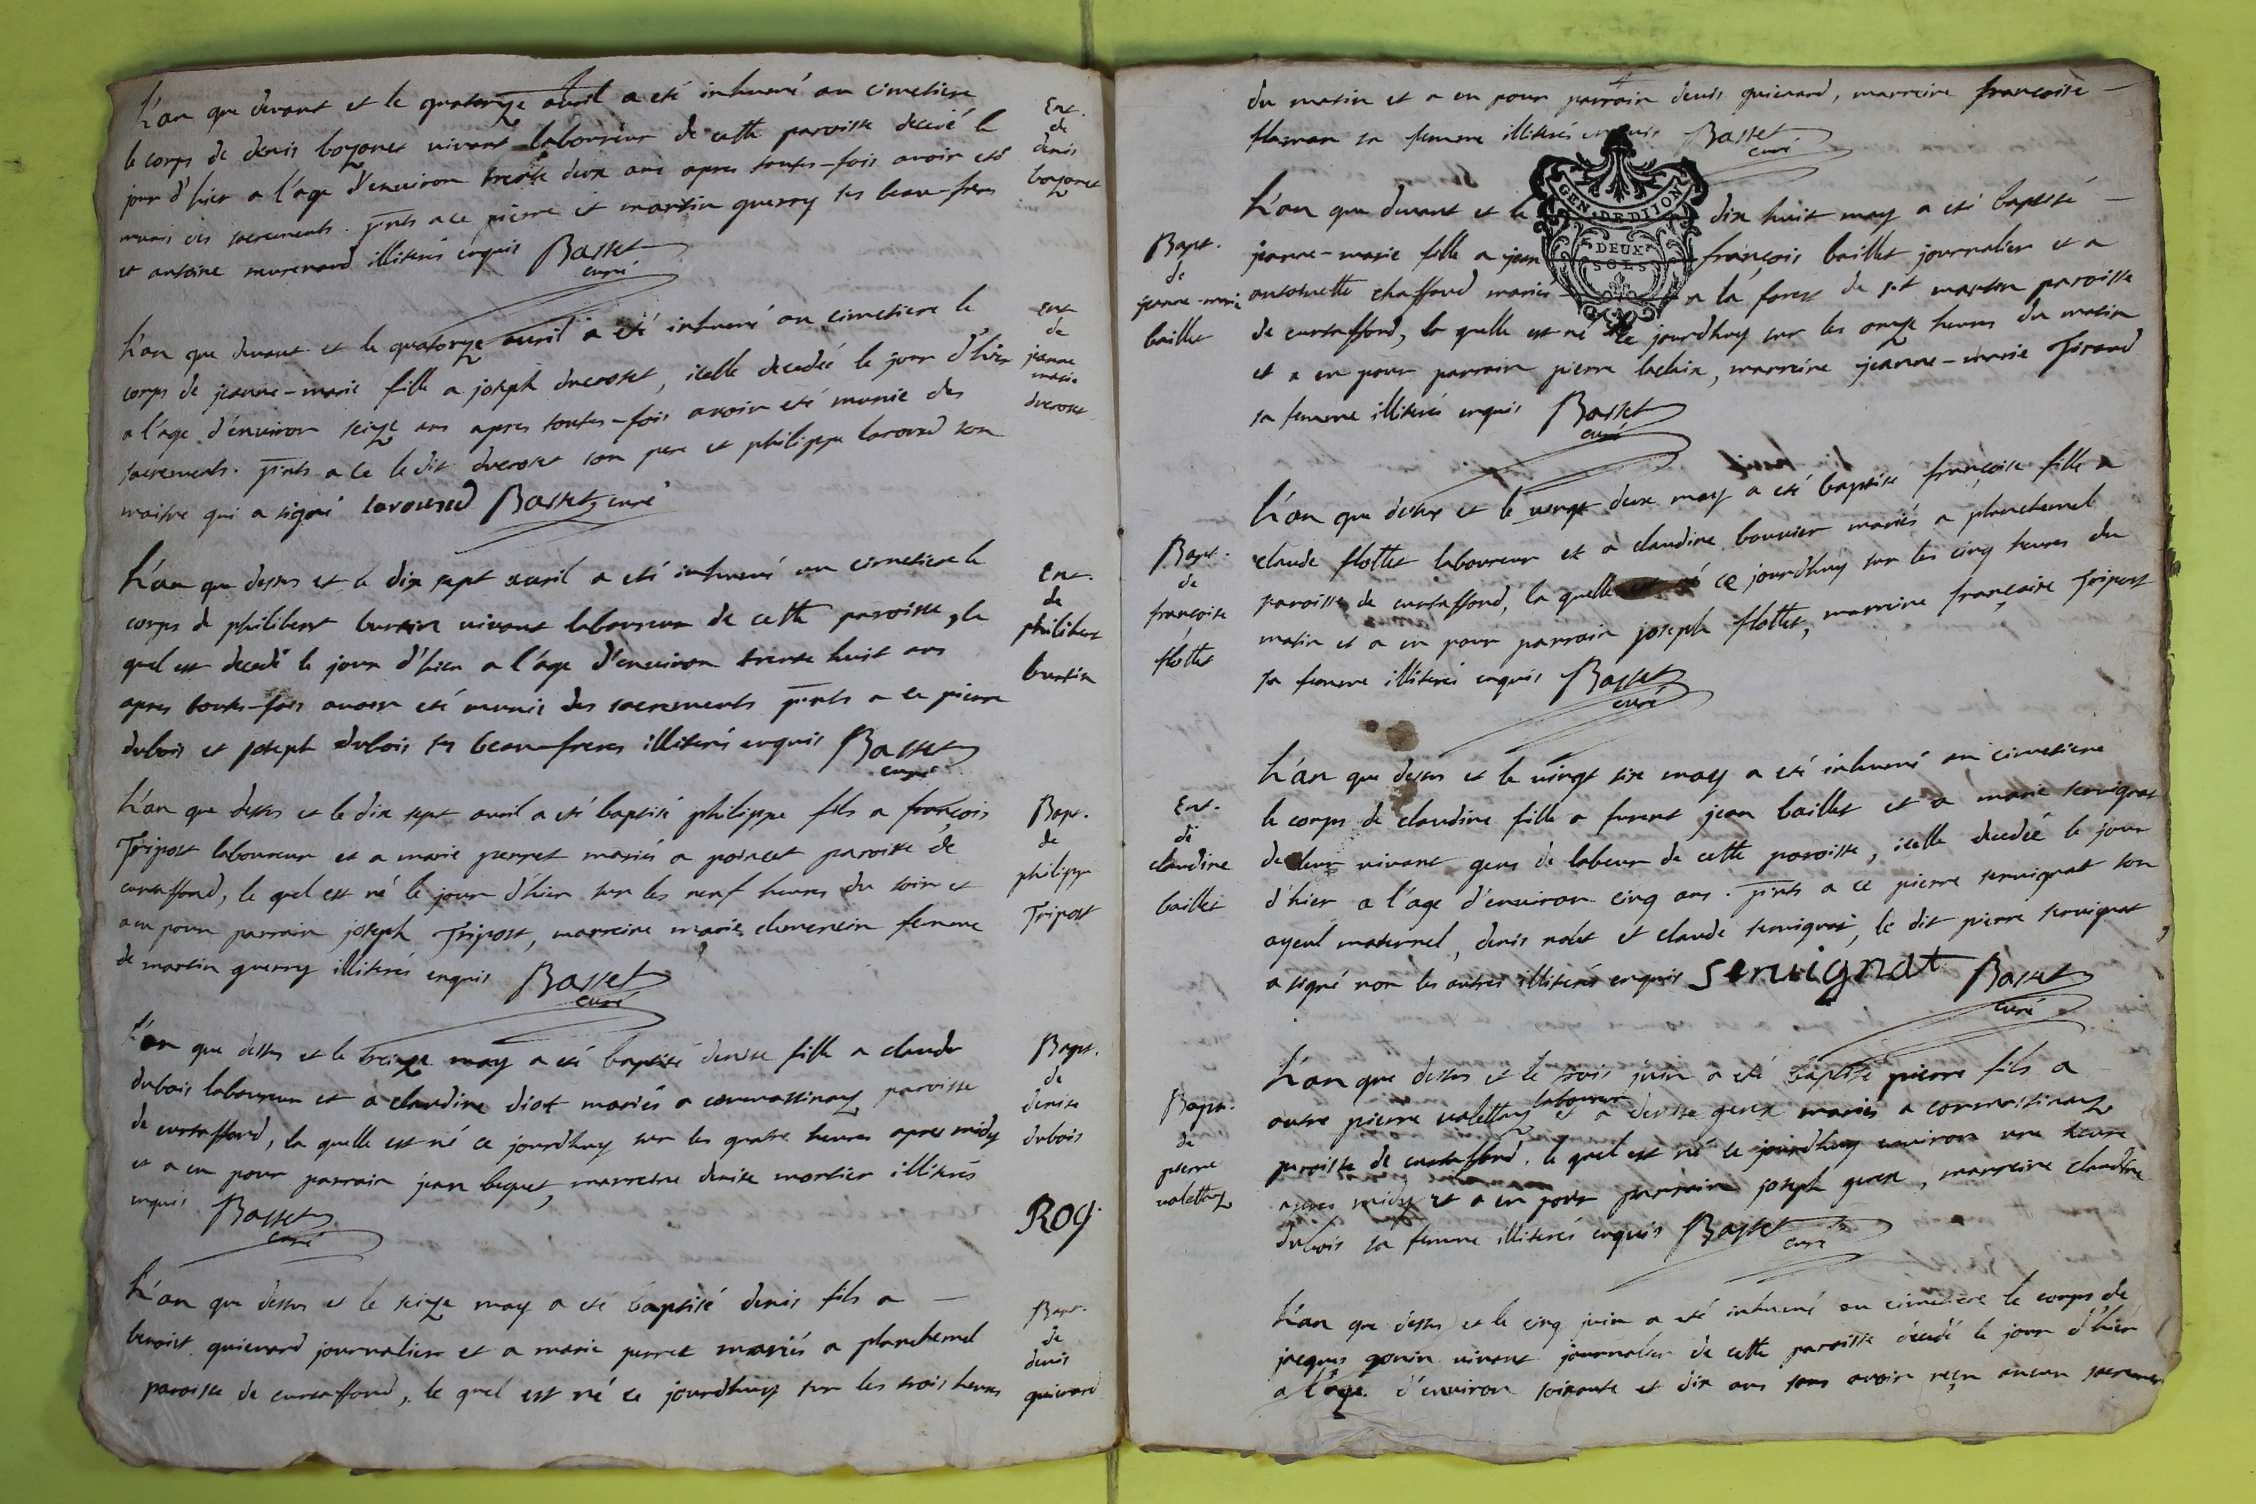 L'an que devant et le quatorze avril a eté inhumé au cimetiere
le corps de denis boyonet vivant laboureur de cette paroisse decedé le
jour d'hier a l'age d'environ trente deux ans apres toutes-fois avoir eté
muni des sacrements. pnts a ce pierre et martin guerry ses beau-freres
et antoine illiterés enquis Basset
curé
Ent.
de
denis
boyonet
L'an que devant et le quatorze avril a eté inhumé au cimetiere le
corps de jeanne-marie fille a joseph ducroset, icelle decedée le jour d'hier
a l'age d'environ seize ans apres toutes-fois avoir eté munie des
sacrements. pnts a ce le dit ducroset son pere et philippe laroused son
maitre qui a signé laroused Basset curé
Ent
de
jeanne
marie
ducroset
L'an que dessus et le dix sept avril a eté inhumé au cimetiere le
corps de philibert burtin vivant laboureur de cette paroisse, le
quel est decedé le jour d'hier a l'age d'environ trente huit ans
apres toutes-fois avoir eté munis des sacrements pnts a ce pierre
dubois et joseph dubois ses beau-freres illiterés enquis Basset
curé
Ent.
de
philibert
burtin
L'an que dessus et le dix sept avril a eté baptisé philippe fils a françois
Tripost laboureur et a marie perret mariés a poincet paroisse de
curtaffond, le quel est né le jour d'hier sur les neuf heures du soir et
a eu pour parrain joseph Tripost, marreine marie femme
de martin guerry illiterés enquis Basset
curé
Bapt.
de
philippe
Tripost
L'an que dessus et le treize may a eté baptisé denise fille a claude
dubois laboureur et a claudine diot mariés a cormassinay paroisse
de curtaffond, la quelle est né ce jourdhuy sur les quatre heures apres midy
et a eu pour parrain jean bequet, marreine denise mortier illiterés
enquis Basset
curé
Bapt.
de
denise
dubois
ROY.
L'an que dessus et le seize may a eté baptisé denis fils a —
benoist quienard journalier et a marie perret mariés a planchemel
paroisse de curtaffond, le quel est né ce jourdhuy sur les trois heures
Bapt.
de
denis
quienard
du matin et a eu pour parrain denis quienard, marreine françoise —
flaman sa femme illiterés enquis Basset
curé
GEN. DE DIJON
DEUX
SOLS
L'an que devant et le dix huit may a eté baptisé —
jeanne-marie fille a jean françois baillet journalier et a
antoinette chaffaud mariés a la forest de st martin paroisse
de curtaffond, la quelle est né ce jourdhuy sur les onze heures du matin
et a eu pour parrain pierre laclaix, marreine jeanne-marie Tirand
sa femme illiterés enquis Basset
curé
Bapt.
de
jeanne-marie
baillet
L'an que dessus et le vingt deux may a eté baptisé françoise fille a
claude flottet laboureur et a claudine bouvier mariés a planchemel
paroisse de curtaffond, la quelle est né ce jourdhuy sur les cinq heures du
matin et a eu pour parrain joseph flottet, marreine françoise Tripost
sa femme illiterés enquis Basset
curé
Bapt.
de
françoise
flottet
L'an que dessus et le vingt six may a eté inhumé au cimetiere
le corps de claudine fille a furent jean baillet et a marie servignat
de leur vivant gens de labeur de cette paroisse, icelle decedée le jour
d'hier a l'age d'environ cinq ans. pnts a ce pierre servignat son
ayeul maternel, denis nolet et claude servignat, le dit pierre servignat
a signé non les autres illiterés enquis servignat Basset
curé
Ent.
de
claudine
baillet
L'an que dessus et le trois juin a eté baptisé pierre fils a
autre pierre valettaz laboureur et a denise gerex mariés a cormassinay
paroisse de curtaffond. le quel est né ce jourdhuy environ une heure
apres midy et a eu pour parrain joseph gerex, marreine claudine
dubois sa femme illiterés enquis Basset
curé
Bapt.
de
pierre
valettaz
L'an que dessus et le cinq juin a eté inhumé au cimetiere le corps de
jacques gonin vivant journalier de cette paroisse decedé le jour d'hier
a l'age d'environ soixante et dix ans sans avoir reçu aucun sacrement